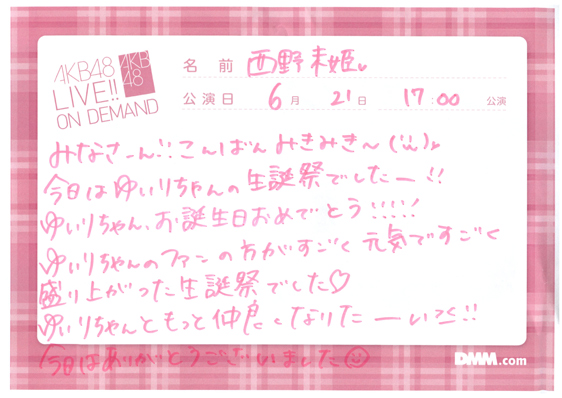 AKB48
LIVE!!
ON DEMAND
AKB
48
名前 西野未姫
公演日 6月 21日 17:00 公演
みなさーん!!こんばんみきみき〜(¨)
今日はゆいりちゃんの生誕祭でしたー!!
ゆいりちゃん、お誕生日おめでとう!!!!
ゆいりちゃんのファンの方がすごく元気ですごく
盛り上がった生誕祭でした♡
ゆいりちゃんともっと仲良くなりたーい!!
今日はありがとうございました☺
DMM.com